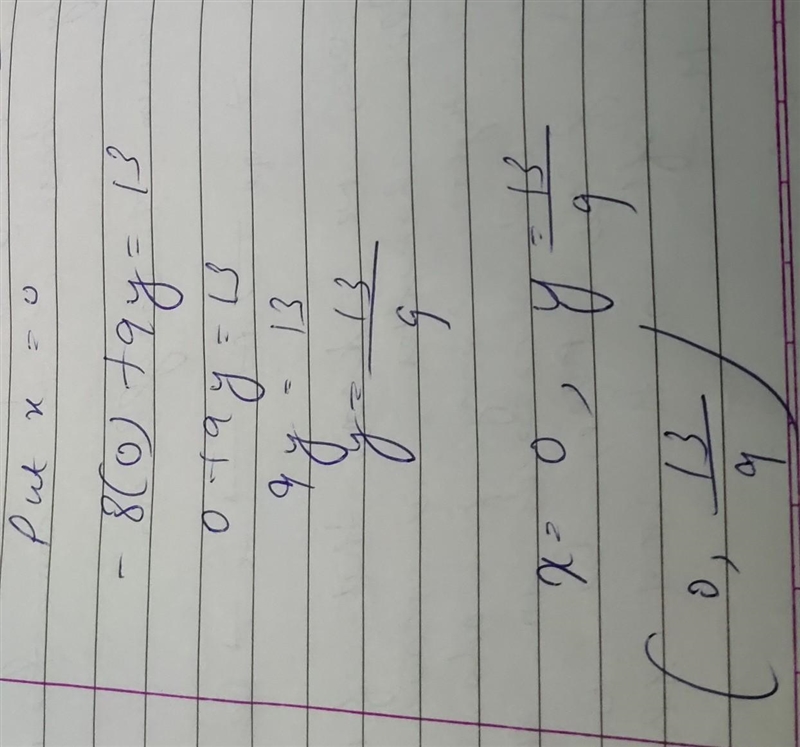 Put x = 0
- 8(0) + 9y = 13
0 + 9y = 13
9y = 13
y = 13/9
x = 0, y = 13/9
(0, 13/9)